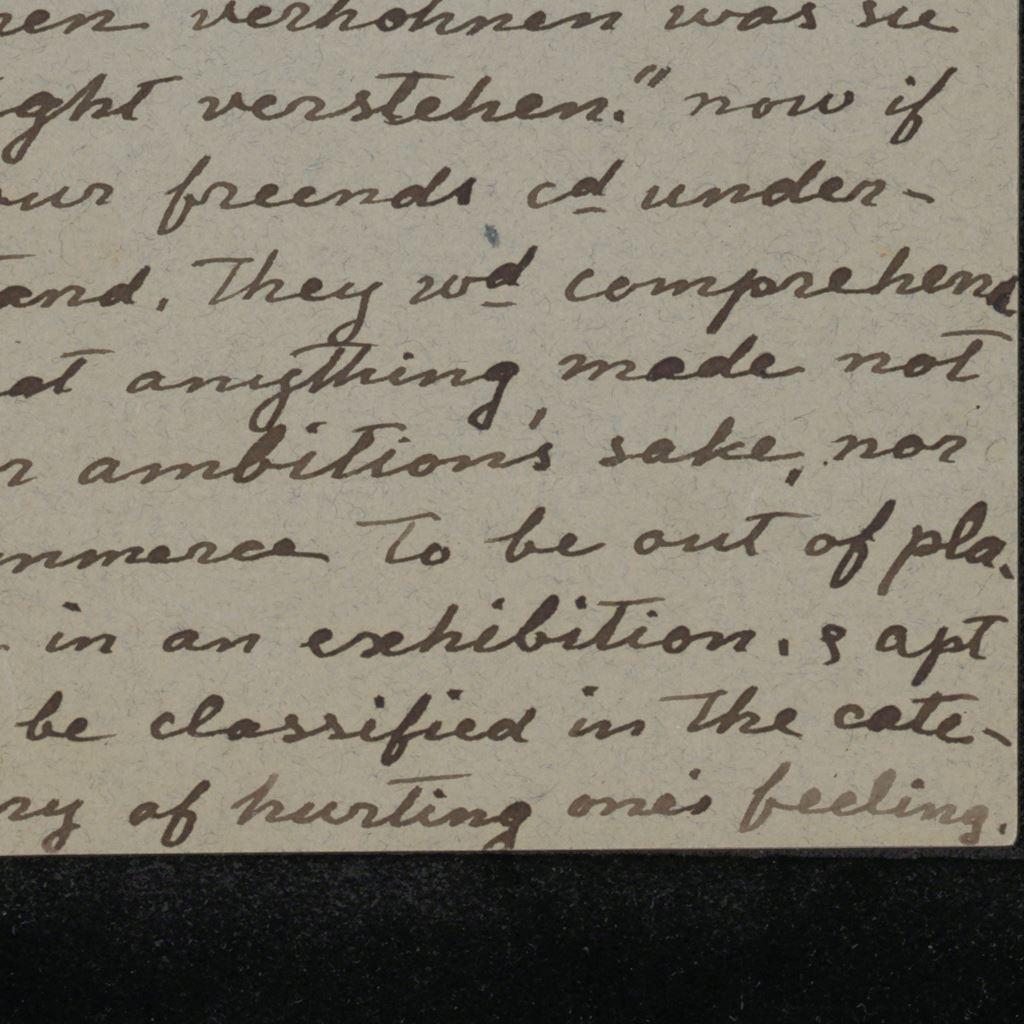 en verhohnen was sie
ght verstehen." now if
ur freends cd under-
and, They wd comprehend
at anything made not
r ambition's sake, nor
mmerce To be out of pla-
in an exhibition. & apt
be classified in The cate-
ry of hurting one's feeling.